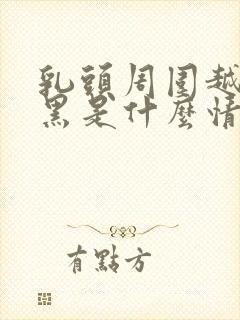 乳頭周圍越
黑是什麼情
有點方